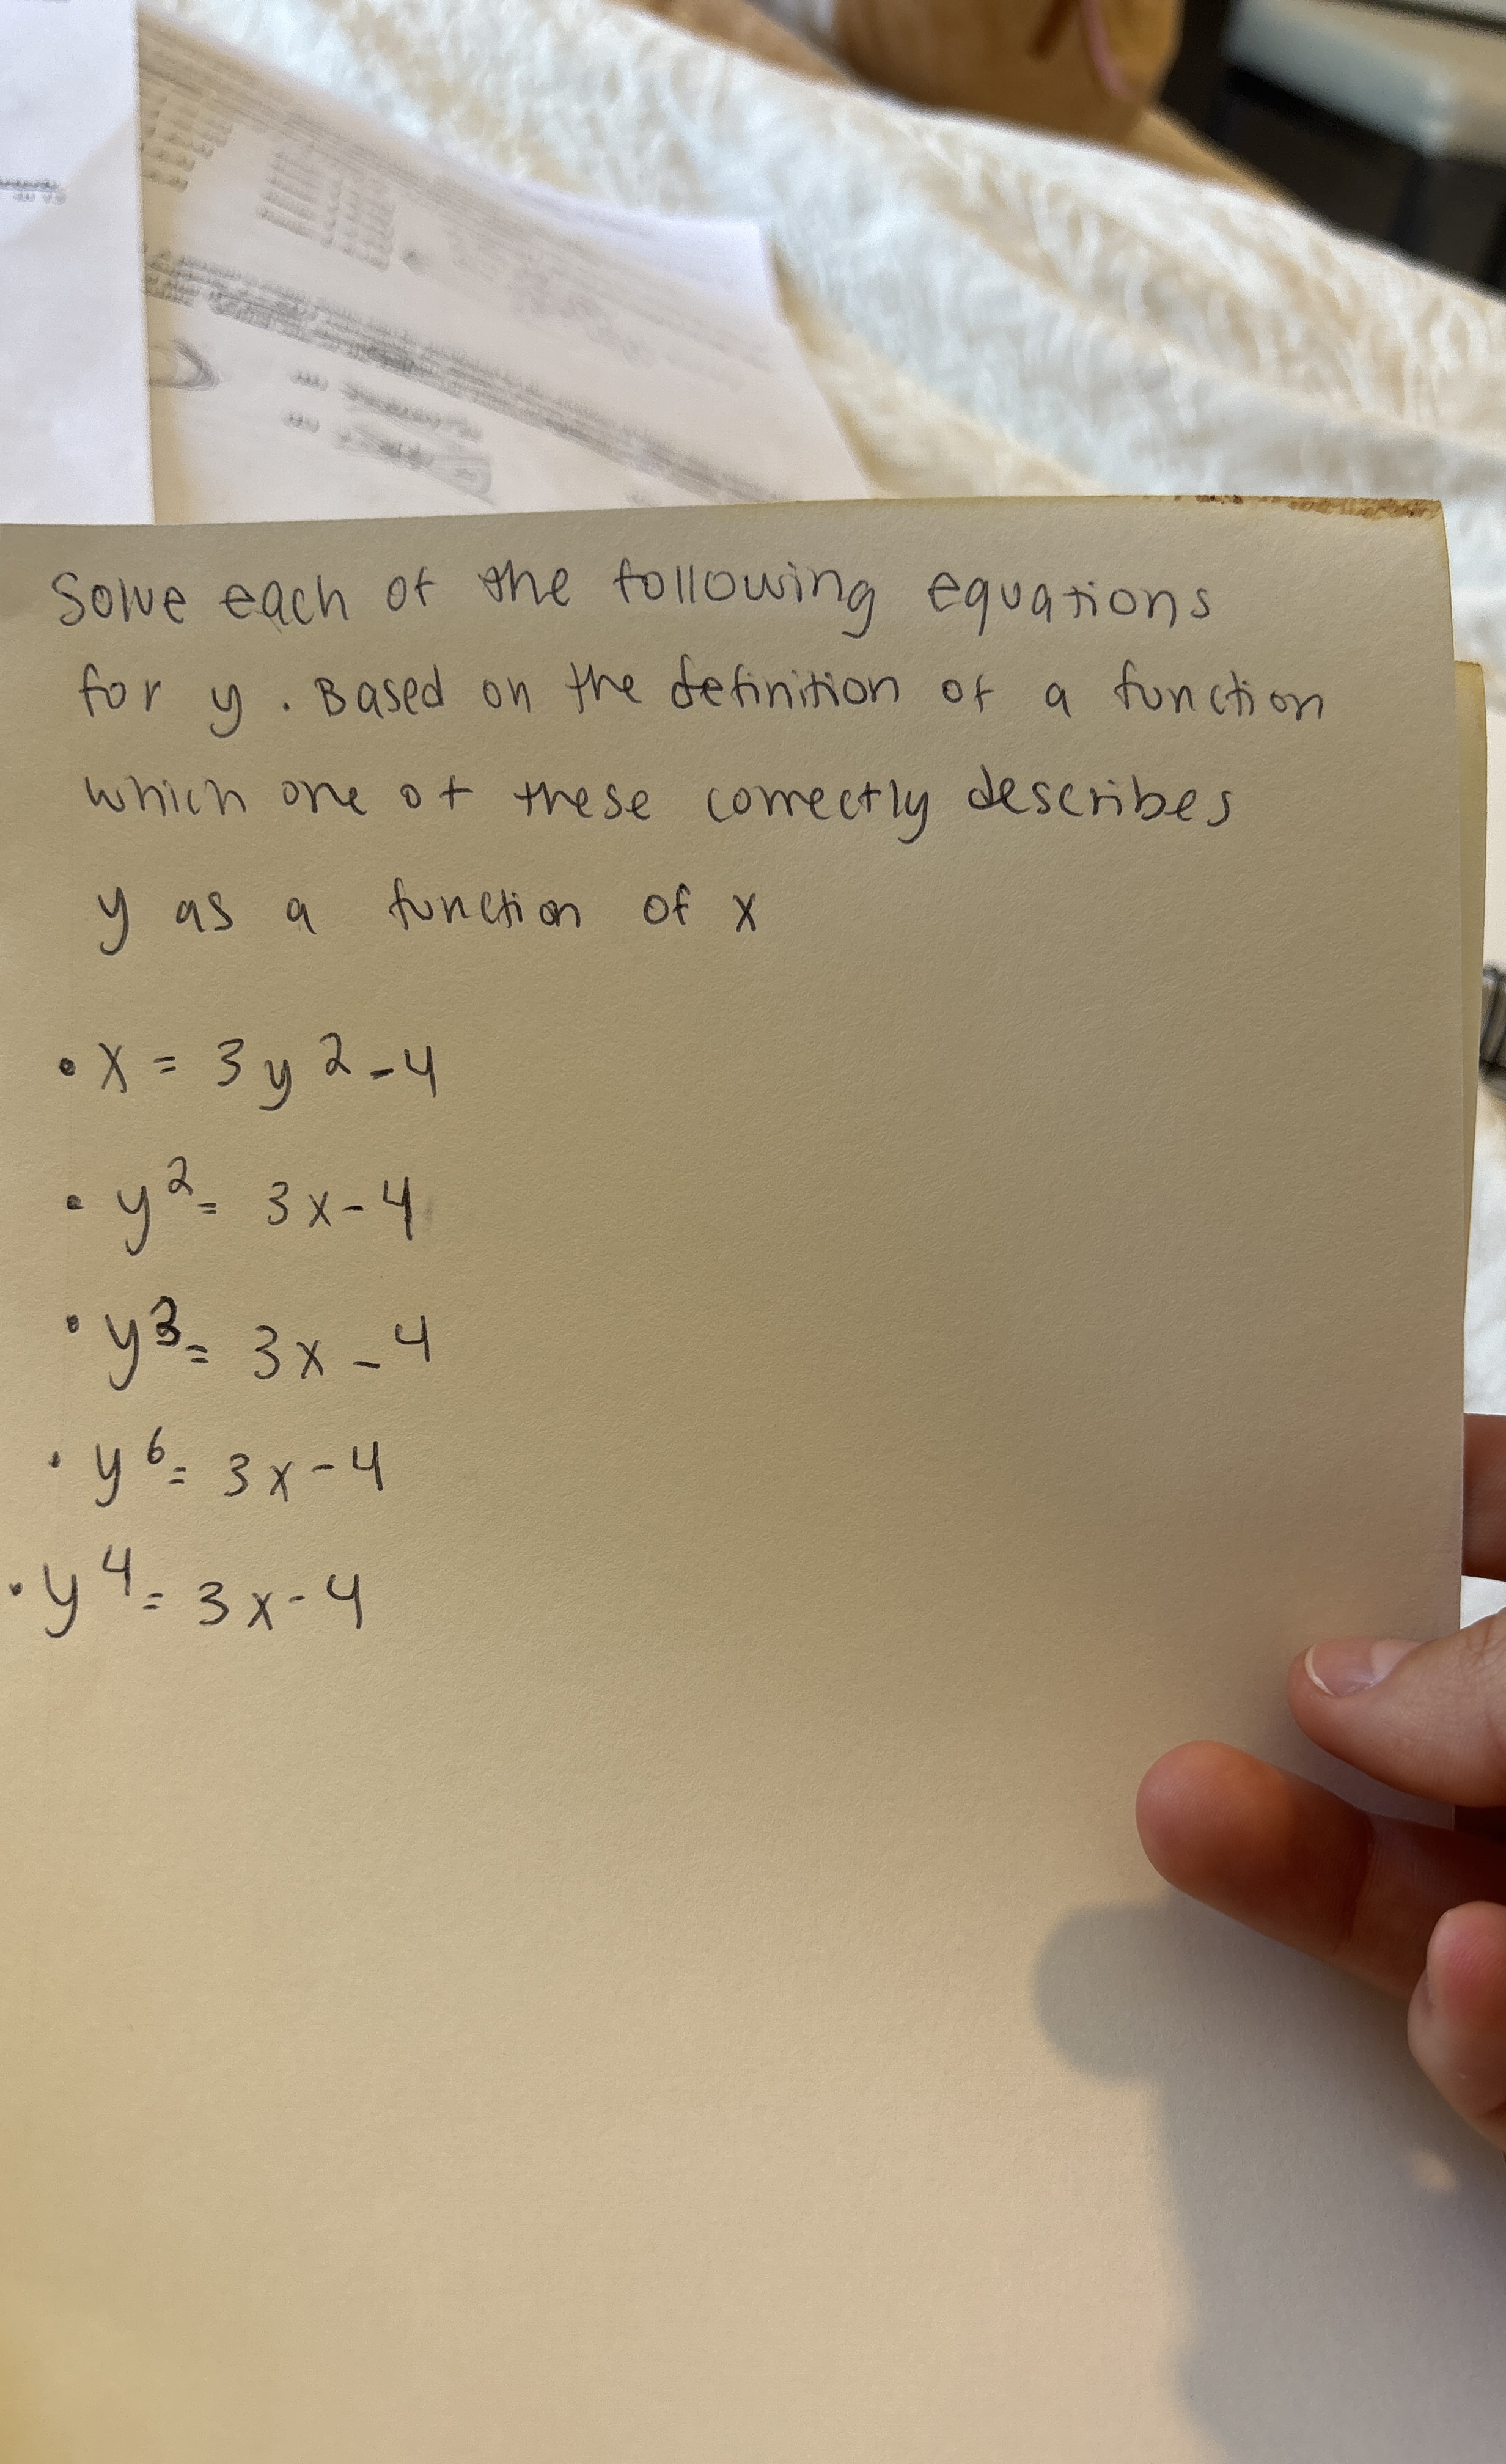 Solve each of the following equations
for y. Based on the definition of a function
which one of these correctly describes
y as a function of x
• x = 3y² - 4
• y² = 3x - 4
• y³ = 3x - 4
• y⁶ = 3x - 4
• y⁴ = 3x - 4